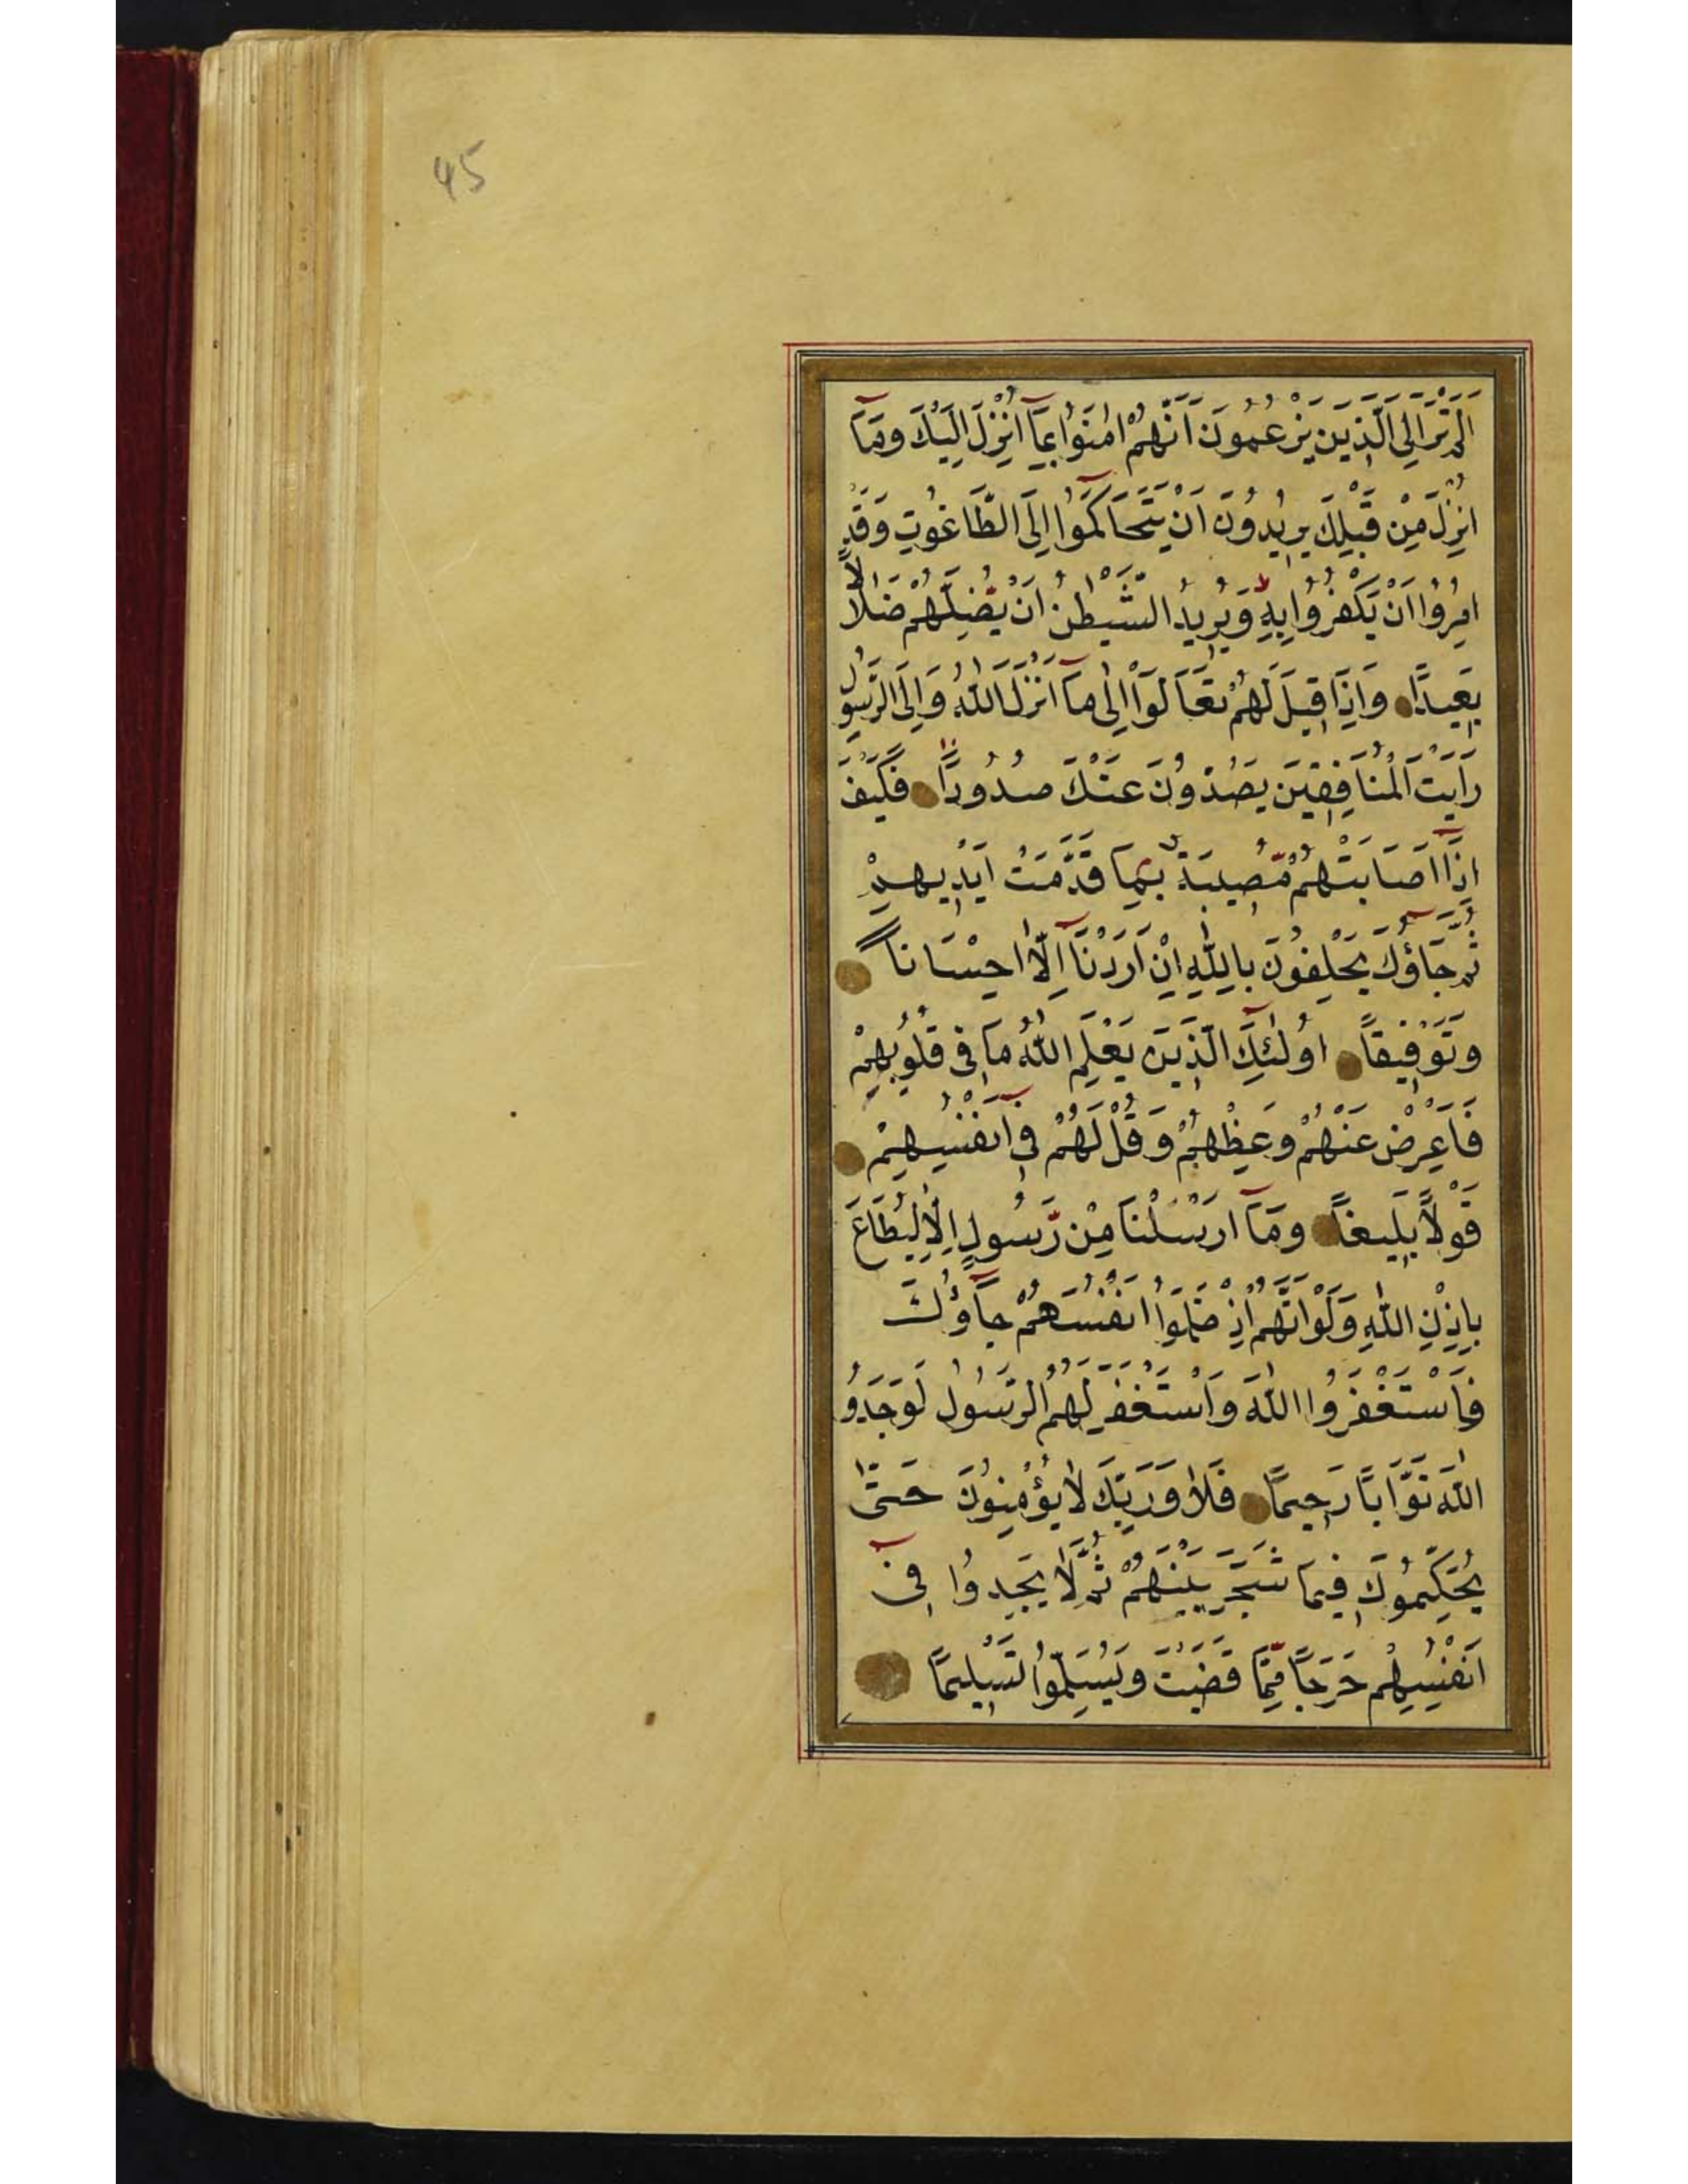 45
اَلَمْ تَرَ اِلَى الَّذ۪ينَ يَزْعُمُونَ اَنَّهُمْ اٰمَنُوا بِمَٓا اُنْزِلَ اِلَيْكَ وَمَٓا
اُنْزِلَ مِنْ قَبْلِكَ يُر۪يدُونَ اَنْ يَتَحَاكَمُٓوا اِلَى الطَّاغُوتِ وَقَدْ
اُمِرُٓوا اَنْ يَكْفُرُوا بِهِ وَيُر۪يدُ الشَّيْطٰنُ اَنْ يُضِلَّهُمْ ضَلَالًا
بَع۪يدًا وَاِذَا ق۪يلَ لَهُمْ تَعَالَوْا اِلٰى مَٓا اَنْزَلَ اللّٰهُ وَاِلَى الرَّسُولِ
رَاَيْتَ الْمُنَافِق۪ينَ يَصُدُّونَ عَنْكَ صُدُودًا فَكَيْفَ
اِذَٓا اَصَابَتْهُمْ مُص۪يبَةٌ بِمَا قَدَّمَتْ اَيْد۪يهِمْ
ثُمَّ جَٓاؤُكَ يَحْلِفُونَ بِاللّٰهِ اِنْ اَرَدْنَٓا اِلَّٓا اِحْسَانًا
وَتَوْف۪يقًا اُولٰٓئِكَ الَّذ۪ينَ يَعْلَمُ اللّٰهُ مَا ف۪ى قُلُوبِهِمْ
فَاَعْرِضْ عَنْهُمْ وَعِظْهُمْ وَقُلْ لَهُمْ ف۪ٓى اَنْفُسِهِمْ
قَوْلًا بَل۪يغًا وَمَٓا اَرْسَلْنَا مِنْ رَسُولٍ اِلَّا لِيُطَاعَ
بِاِذْنِ اللّٰهِ وَلَوْ اَنَّهُمْ اِذْ ظَلَمُٓوا اَنْفُسَهُمْ جَٓاؤُكَ
فَاسْتَغْفَرُوا اللّٰهَ وَاسْتَغْفَرَ لَهُمُ الرَّسُولُ لَوَجَدُو
اللّٰهَ تَوَّابًا رَح۪يمًا فَلَا وَرَبِّكَ لَا يُؤْمِنُونَ حَتّٰى
يُحَكِّمُوكَ ف۪يمَا شَجَرَ بَيْنَهُمْ ثُمَّ لَا يَجِدُوا ف۪ٓى
اَنْفُسِهِمْ حَرَجًا مِمَّا قَضَيْتَ وَيُسَلِّمُوا تَسْل۪يمًا